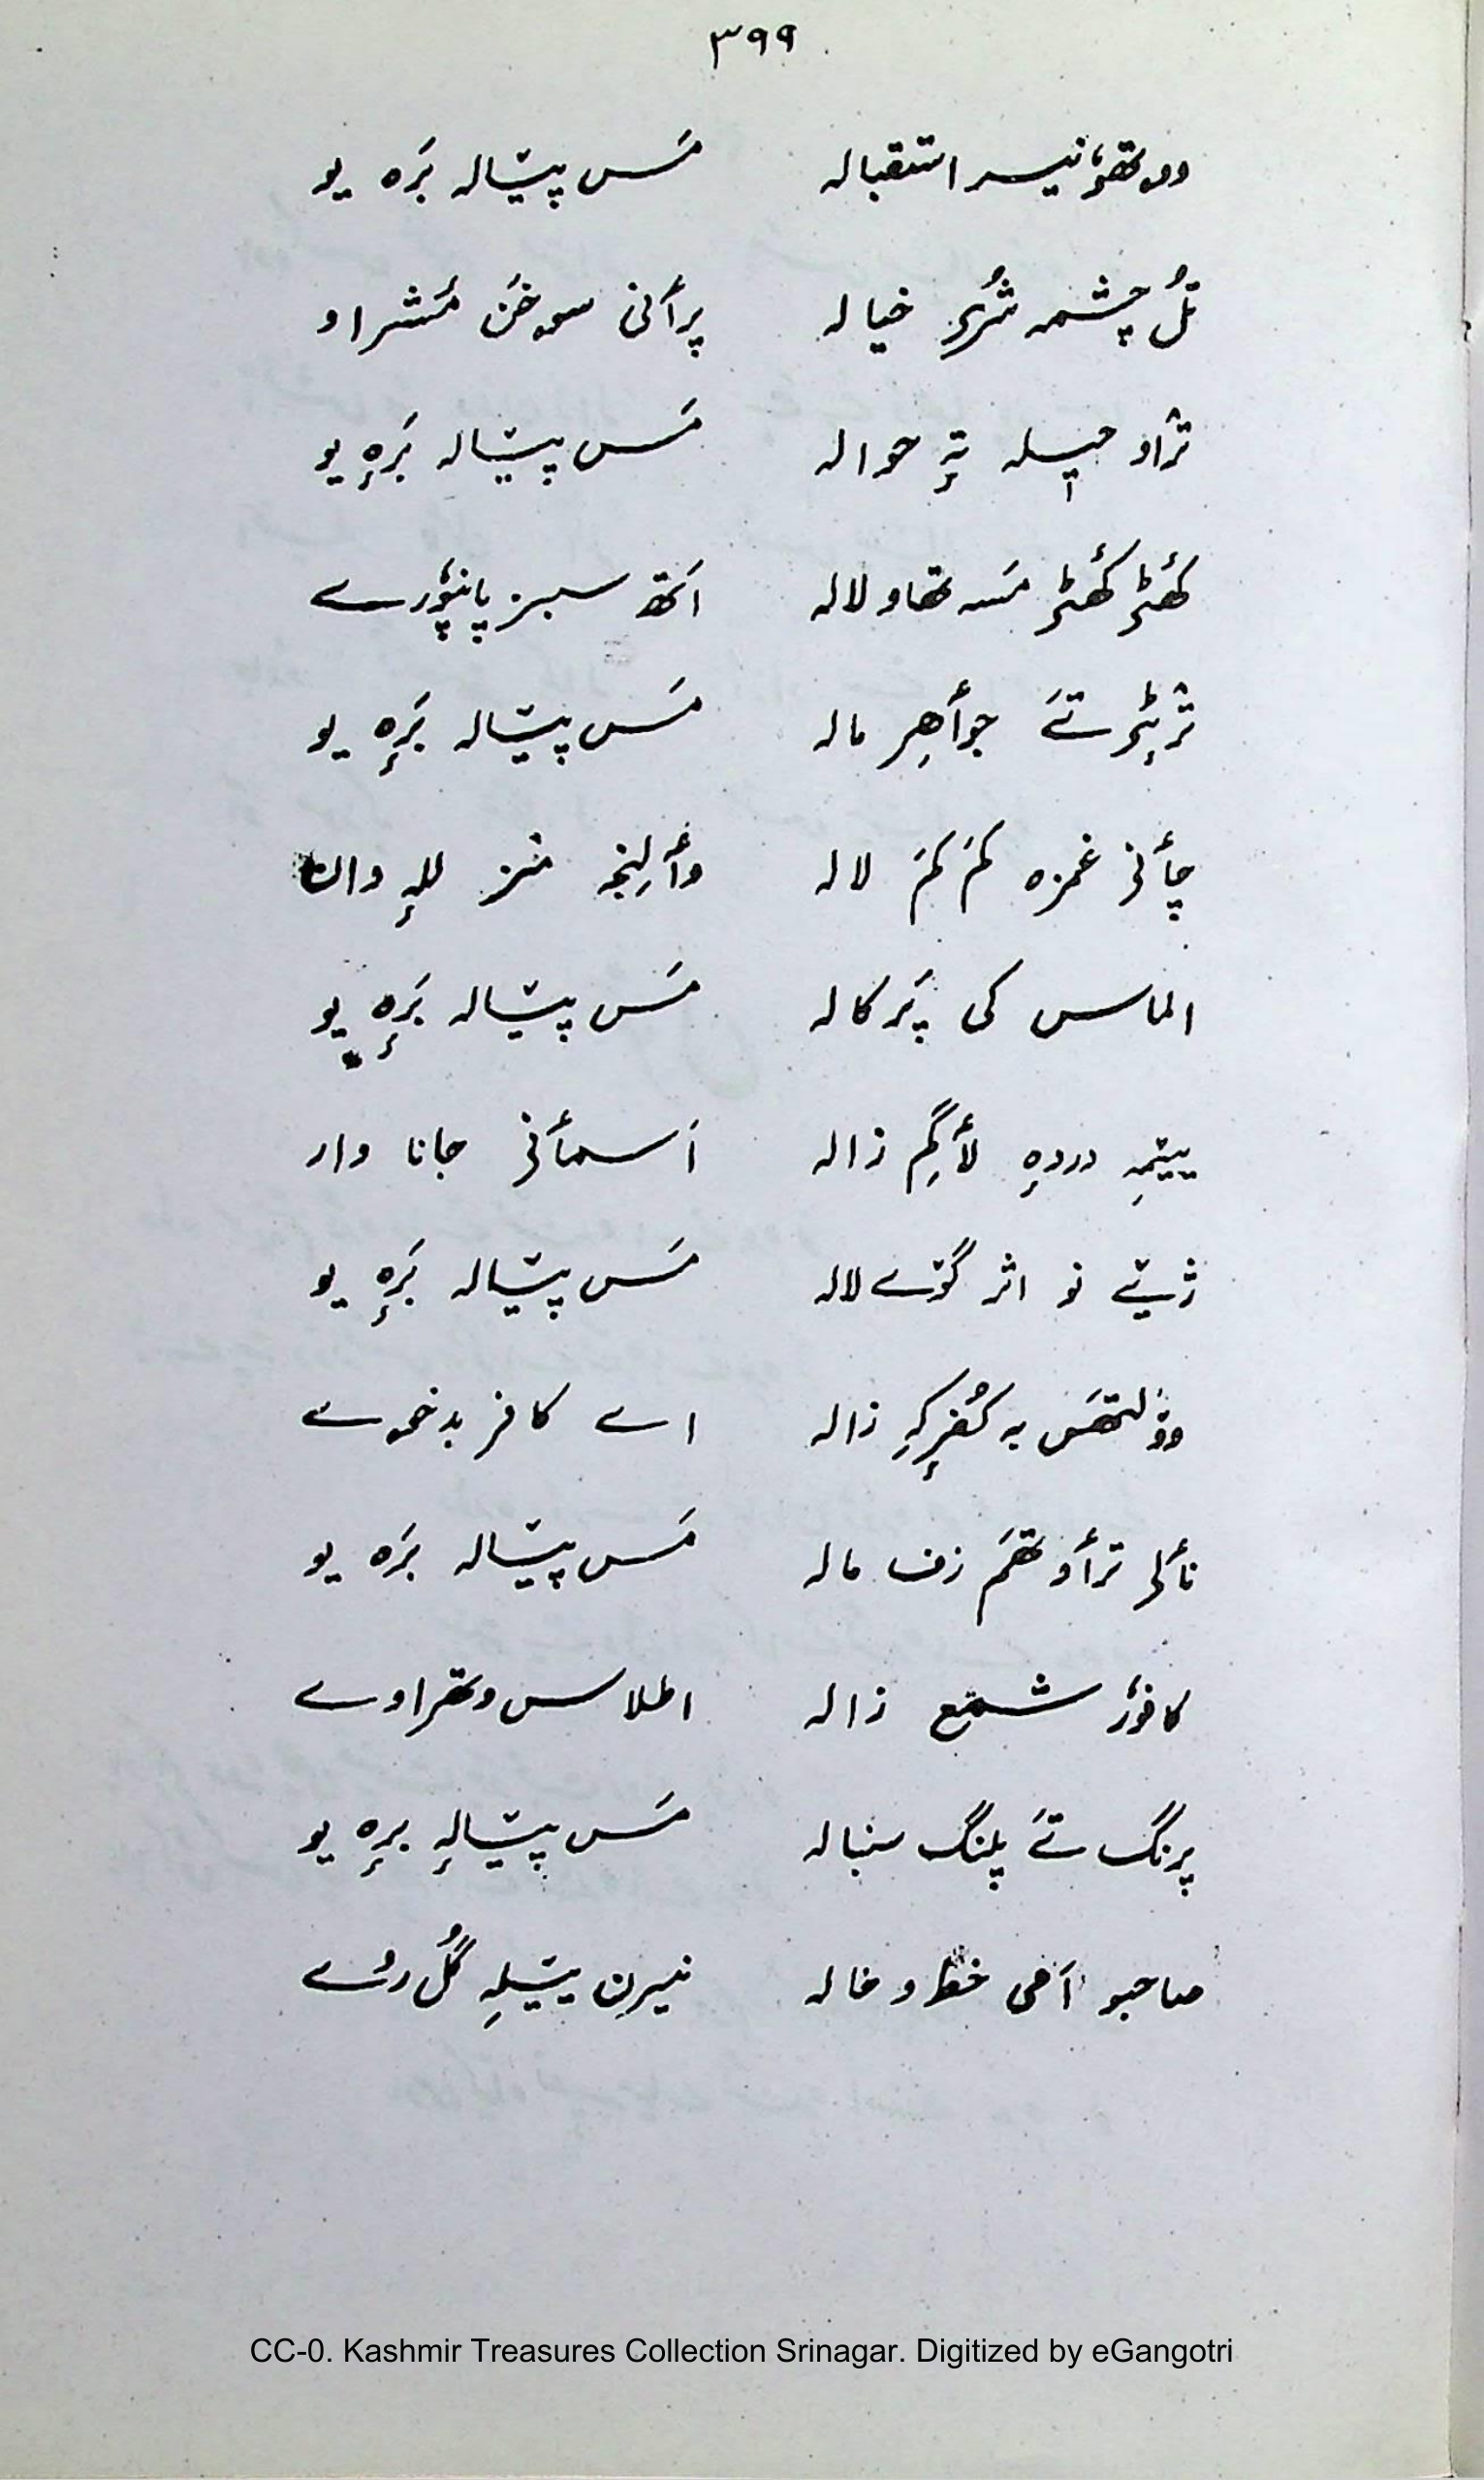 ۳۹۹
ووتھوٗ نیر استقبالہ مَس پیٛالہ بَرہ یو
تُل چشمہ شُرِ خیالہ پرٲنی سوخَن مَشراو
ترٛاو حیلہ تہٕ حوالہ مَس پیٛالہ بَرہٕ یو
کھٔٹۍ کھٔٹۍ مَسہ تھاو لالہ اَتھ سبز پانپوٗرے
ژٕٹۍ تَے جوٲہِر مالہ مَس پیٛالہ بَرہٕ یو
چٲنۍ غمزہ کَم کَم لالہ وٲلِنجہ منز للہٕ وان
الماس کی پَرکالہ مَس پیٛالہ بَرہٕ یو
ییٚمہِ دردہٕ لٲگِم زالہ اَسمٲنۍ جاناوار
ژیٚتے نو اثر گوٚے لالہ مَس پیٛالہ بَرہٕ یو
وۄلتھَس بہ کُفرٕکہِ زالہ اے کافر بدخوے
نٲلۍ ترٲوتھَم زلف مالہ مَس پیٛالہ بَرہ یو
کافوٗر شمع زالہ اطلاس وتھراوے
پرنگ تَے پلنگ سنبالہ مَس پیٛالہٕ برہٕ یو
صاحبو اَمی خط و خالہ نیرن ییٚلہِ گُل رُے
CC-0. Kashmir Treasures Collection Srinagar. Digitized by eGangotri